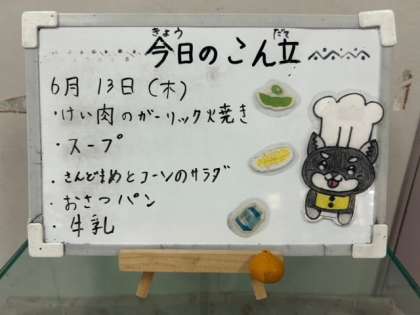 今日のこん立
きょう だて
6月 13日 (木)
・けい肉のガーリック焼き
・スープ
・さんどまめとコーンのサラダ
・おさつパン
・牛乳